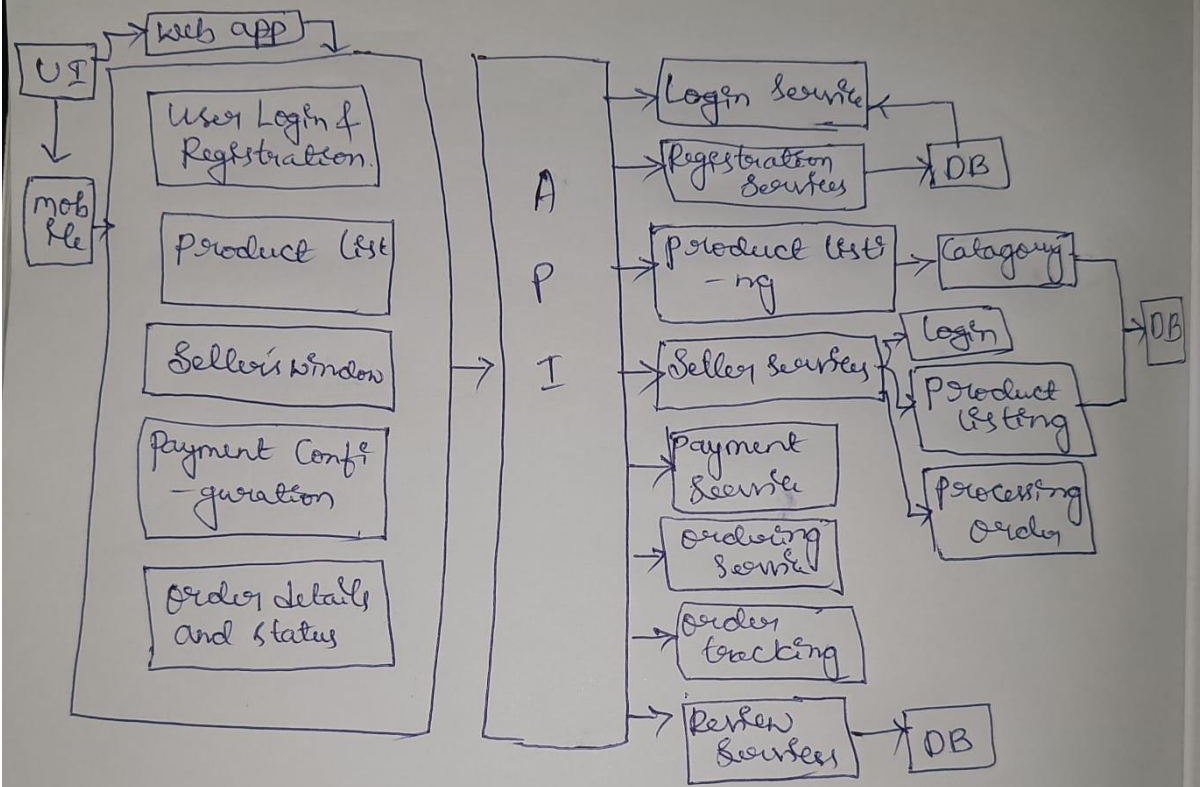 UI
Web app
Mob
ile
User Login &
Registration.
Product List
Seller's window
Payment Confi
-guration
Order details
and status
A
P
I
Login Service
Registration
Services
DB
Product listi
-ng
Catagory
Seller services
Login
Product
listing
Processing
order
DB
Payment
Service
Ordering
Service
Order
tracking
Review
Services
DB